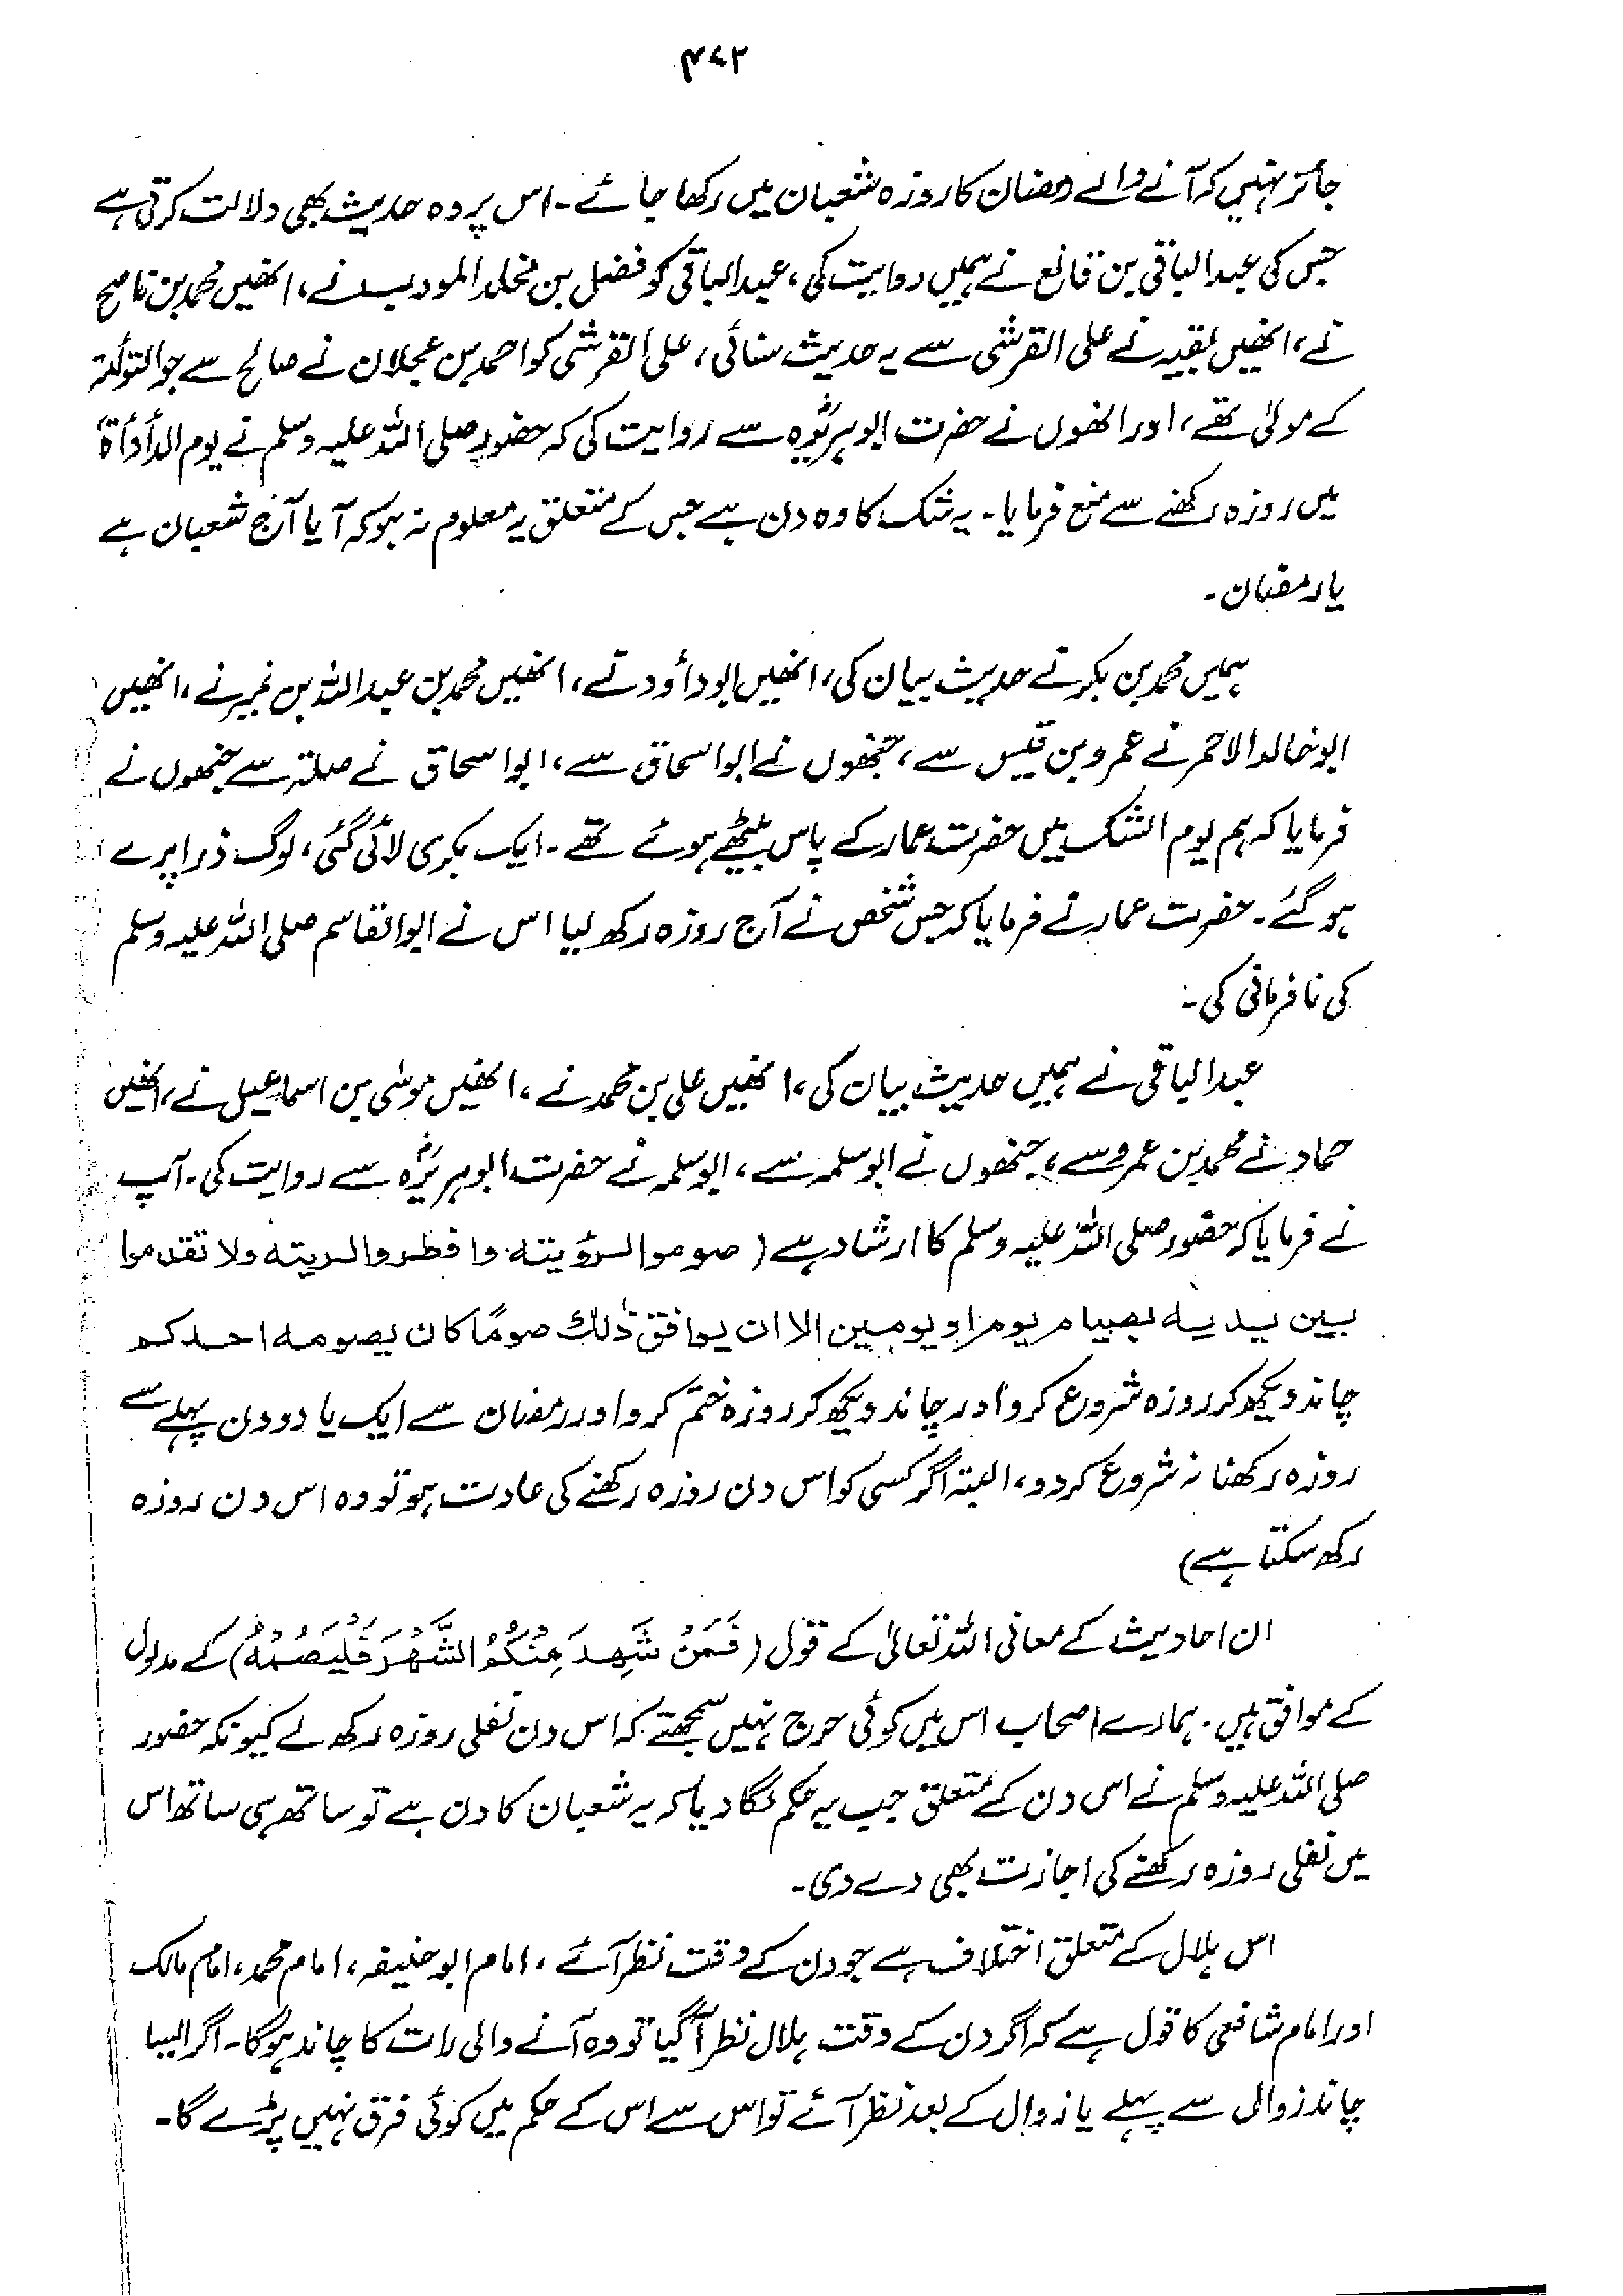 ۴۷۲
جائز نہیں کہ آنے والے رمضان کا روزہ شعبان میں رکھا جائے۔ اس پر وہ حدیث بھی دلالت کرتی ہے
جس کی عبدالباقی بن قانع نے ہمیں روایت کی، عبدالباقی کو فضل بن مخلد المودب نے، انھیں محمد بن ناصح
نے، انھیں بقیہ نے علی القرشی سے یہ حدیث سنائی، علی القرشی کو احمد بن عجلان نے صالح سے جو التوأمۃ
کے مولیٰ تھے، اور انھوں نے حضرت ابوہریرہؓ سے روایت کی کہ حضور صلی اللہ علیہ وسلم نے یوم الدأدأۃ
میں روزہ رکھنے سے منع فرمایا۔ یہ شک کا وہ دن ہے جس کے متعلق یہ معلوم نہ ہو کہ آیا آج شعبان ہے
یا رمضان۔
ہمیں محمد بن بکر نے حدیث بیان کی، انھیں ابوداؤد نے، انھیں محمد بن عبداللہ بن نمیر نے، انھیں
ابوخالد الاحمر نے عمرو بن قیس سے، جنھوں نے ابواسحاق سے، ابواسحاق نے صلۃ سے جنھوں نے
فرمایا کہ ہم یوم الشک میں حضرت عمار کے پاس بیٹھے ہوئے تھے۔ ایک بکری لائی گئی، لوگ ذرا پرے
ہو گئے۔ حضرت عمار نے فرمایا کہ جس شخص نے آج روزہ رکھ لیا اس نے ابوالقاسم صلی اللہ علیہ وسلم
کی نافرمانی کی۔
عبدالباقی نے ہمیں حدیث بیان کی، انھیں علی بن محمد نے، انھیں موسٰی بن اسماعیل نے، انھیں
حماد نے محمد بن عمرو سے، جنھوں نے ابوسلمہ سے، ابوسلمہ نے حضرت ابوہریرہؓ سے روایت کی۔ آپ
نے فرمایا کہ حضور صلی اللہ علیہ وسلم کا ارشاد ہے (صوموا لرؤیته وافطروا لریته ولا تقدموا
بین یدیه بصیام یوم او یومین الا ان یوافق ذٰلک صومًا کان یصومه احدکم
چاند دیکھ کر روزہ شروع کرو اور چاند دیکھ کر روزہ ختم کرو اور رمضان سے ایک یا دو دن پہلے سے
روزہ رکھنا نہ شروع کر دو، البتہ اگر کسی کو اس دن روزہ رکھنے کی عادت ہو تو وہ اس دن روزہ
رکھ سکتا ہے)
ان احادیث کے معانی اللہ تعالیٰ کے قول (فَمَنْ شَهِدَ مِنْكُمُ الشَّهْرَ فَلْيَصُمْهُ) کے مدلول
کے موافق ہیں۔ ہمارے اصحاب اس میں کوئی حرج نہیں سمجھتے کہ اس دن نفلی روزہ رکھ لے کیونکہ حضور
صلی اللہ علیہ وسلم نے اس دن کے متعلق جب یہ حکم لگا دیا کہ یہ شعبان کا دن ہے تو ساتھ ہی ساتھ اس
میں نفلی روزہ رکھنے کی اجازت بھی دے دی۔
اس ہلال کے متعلق اختلاف ہے جو دن کے وقت نظر آئے، امام ابوحنیفہ، امام محمد، امام مالک
اور امام شافعی کا قول ہے کہ اگر دن کے وقت ہلال نظر آ گیا تو وہ آنے والی رات کا چاند ہو گا۔ اگر ایسا
چاند زوال سے پہلے یا زوال کے بعد نظر آئے تو اس سے اس کے حکم میں کوئی فرق نہیں پڑے گا۔